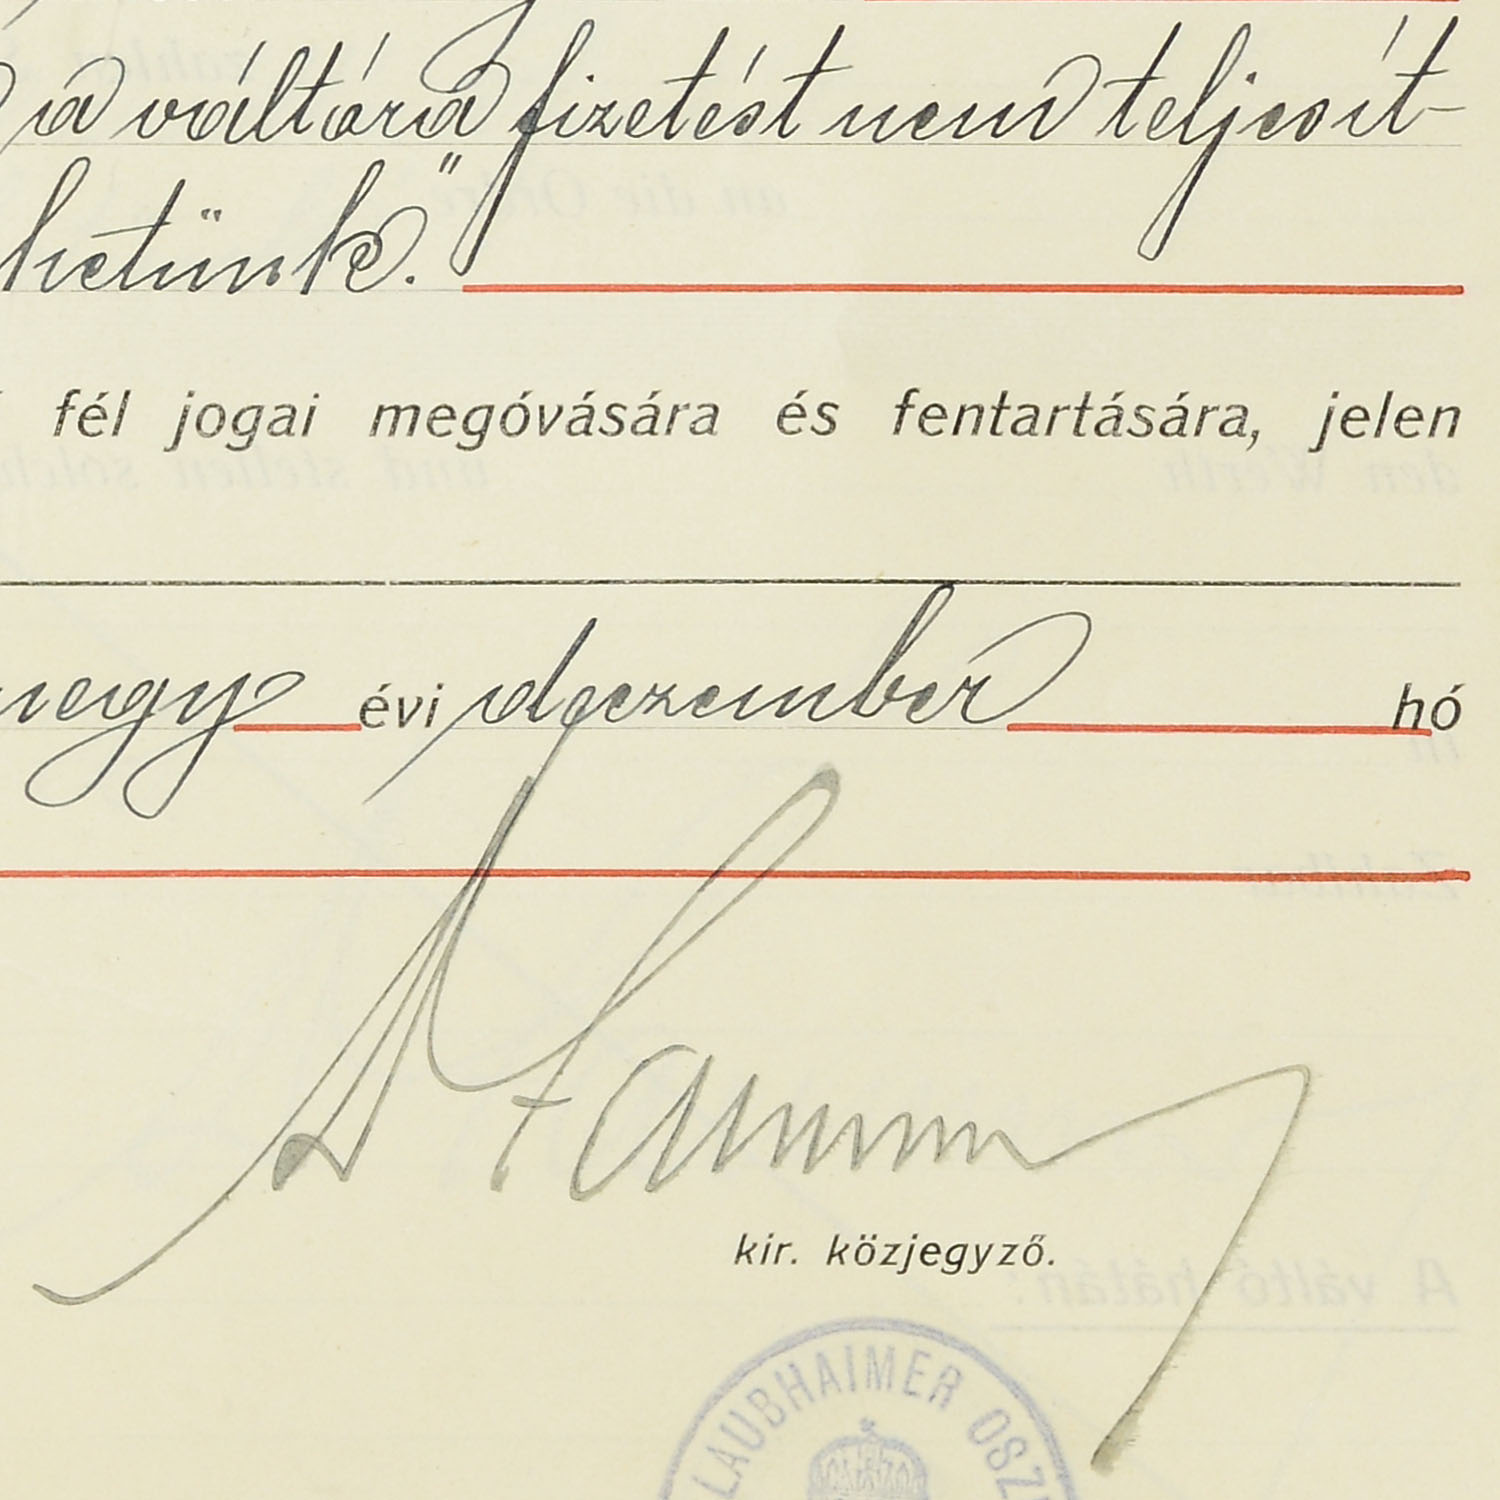 a váltóra fizetést nem teljesít-
hetünk."
fél jogai megóvására és fentartására, jelen
negy évi dezember hó
kir. közjegyző.
LAUBHAIMER OSZ
A váltó hátán: